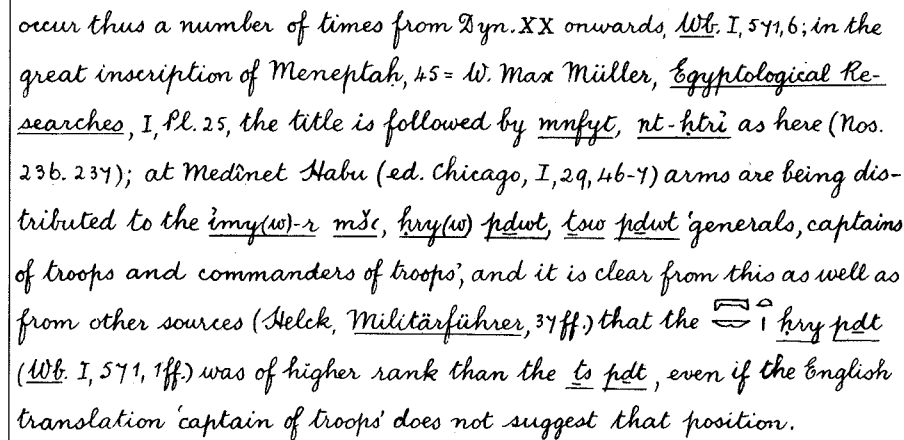 occur thus a number of times from Dyn. XX onwards, Wb. I, 571,6; in the
great inscription of Meneptaḥ, 45 = W. Max Müller, Egyptological Re-
searches, I, Pl. 25, the title is followed by mnfyt, nt-ḥtrỉ as here (Nos.
236. 237); at Medînet Habu (ed. Chicago, I, 29, 46-7) arms are being dis-
tributed to the ỉmy(w)-r mšꜥ, ḥry(w) pḏwt, ṯsw pḏwt 'generals, captains
of troops and commanders of troops', and it is clear from this as well as
from other sources (Helck, Militärführer, 37 ff.) that the ḥry pḏt
(Wb. I, 571, 1ff.) was of higher rank than the ṯs pḏt, even if the English
translation 'captain of troops' does not suggest that position.